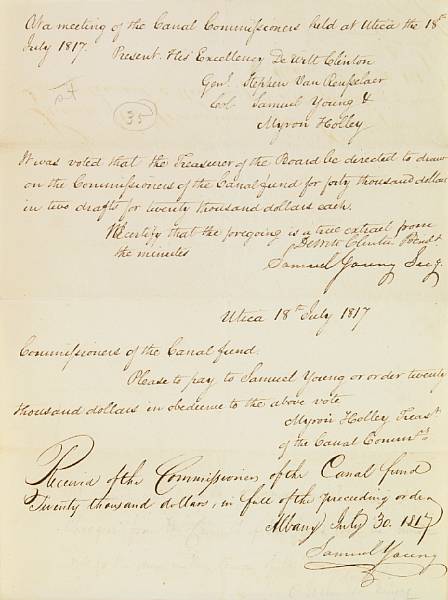 At a meeting of the Canal Commissioners held at Utica the 18th
July 1817. Present. His Excellency De Witt Clinton
Genl. Stephen Van Rensselaer
Col. Samuel Young &
Myron Holley
35
It was voted that the Treasurer of the Board be directed to draw
on the Commissioners of the Canal fund for forty thousand dollars
in two drafts for twenty thousand dollars each.
We certify that the foregoing is a true extract from
the minutes
De Witt Clinton Presdt.
Samuel Young Secy.
Utica 18th July 1817
Commissioners of the Canal fund.
Please to pay to Samuel Young or order twenty
thousand dollars in obedience to the above vote
Myron Holley Treasr
of the Canal Commrs
Received of the Commissioners of the Canal fund
Twenty thousand dollars, in full of the preceding order
Albany July 30. 1817
Samuel Young